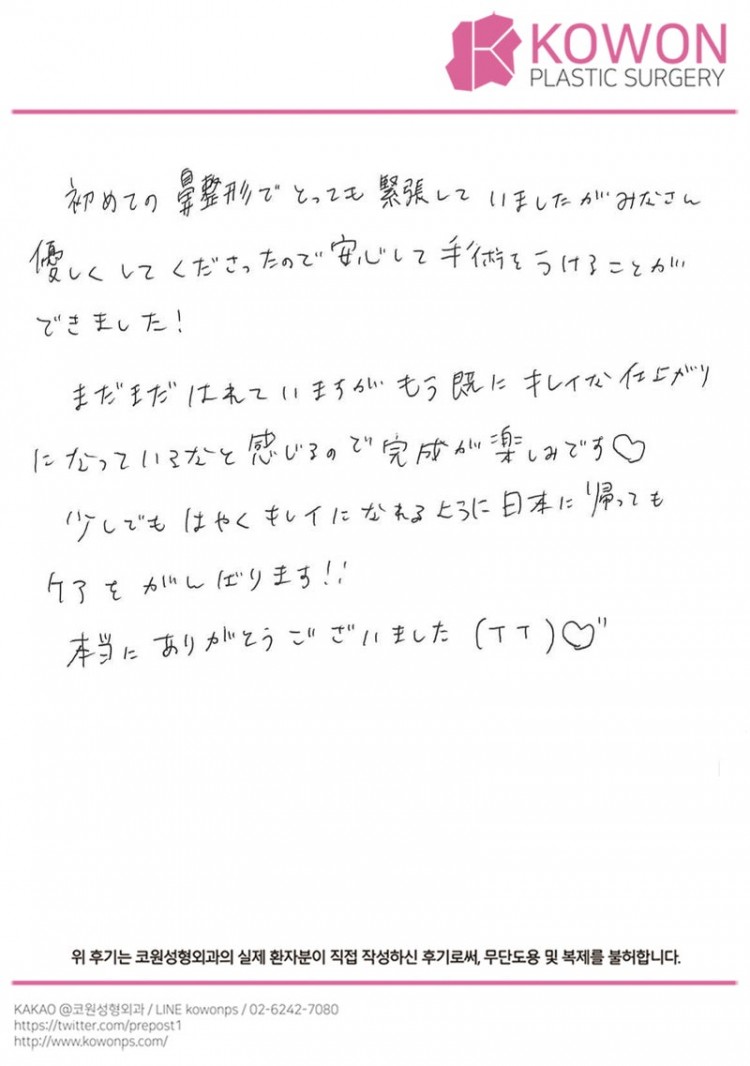 KOWON
PLASTIC SURGERY
初めての鼻整形でとっても緊張していましたがみなさん
優しくしてくださったので安心して手術をうけることが
できました!
まだまだはれていますがもう既にキレイな仕上がり
になっているなと感じるので完成が楽しみです♡
少しでもはやくキレイになれるように日本に帰っても
ケアをがんばります!!
本当にありがとうございました(TT)♡"
위 후기는 코원성형외과의 실제 환자분이 직접 작성하신 후기로써, 무단도용 및 복제를 불허합니다.
KAKAO @코원성형외과 / LINE kowonps / 02-6242-7080
https://twitter.com/prepost1
http://www.kowonps.com/